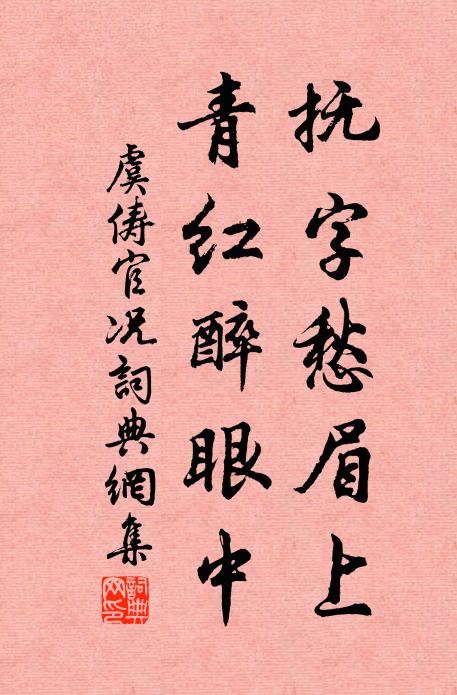 抚字愁眉上
青红醉眼中
虞俦官况詞典網集
詞典
网印